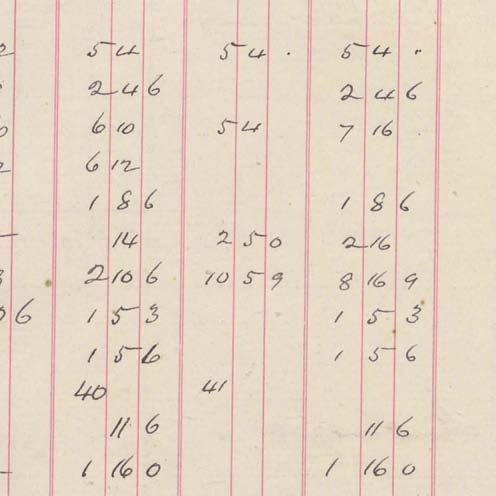 54 54 . 54 "
246 246
6 10 54 7 16
6 12
1 8 6 1 8 6
14 2 5 0 2 16
2 10 6 10 5 9 8 16 9
6 1 5 3 1 5 3
1 5 6 1 5 6
40 41
11 6 11 6
1 16 0 1 16 0